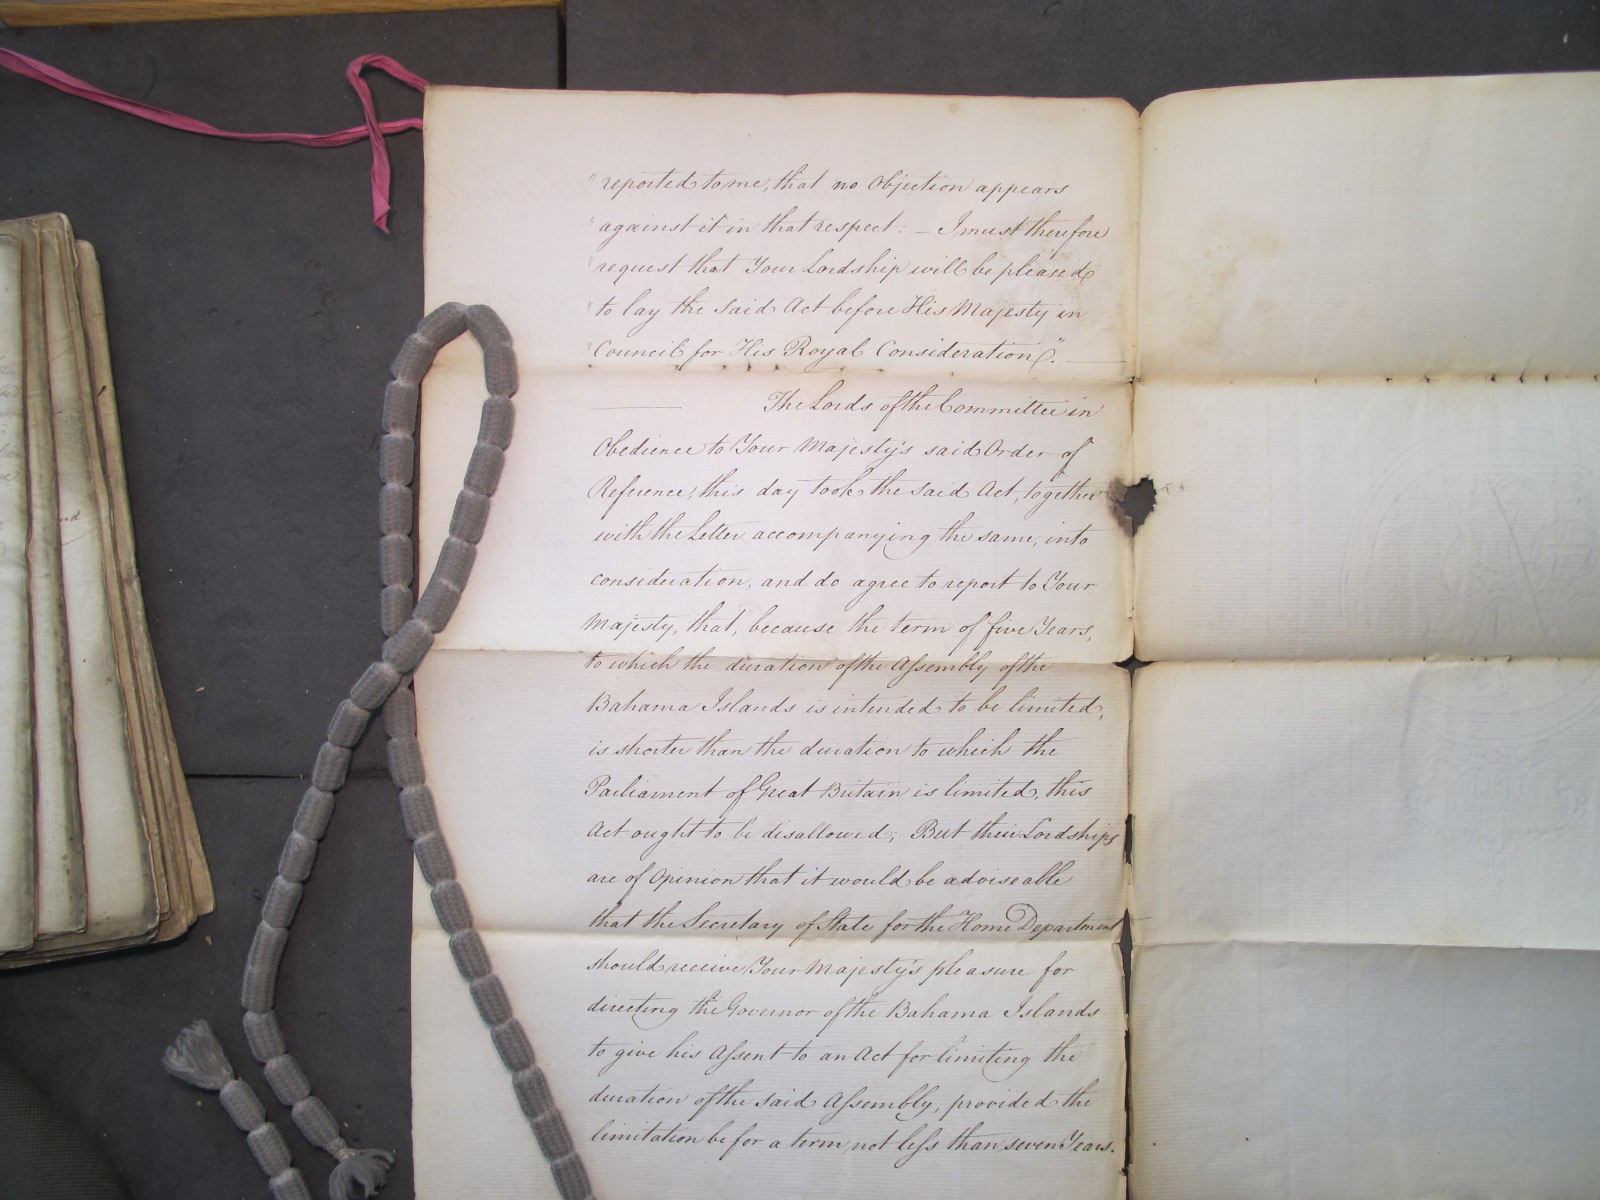 " reported to me, that no Objection appears
" against it in that respect: — I must therefore
" request that Your Lordship will be pleased
" to lay the said Act before His Majesty in
" Council for His Royal Consideration". —
The Lords of the Committee in
Obedience to Your Majesty's said Order of
Reference, this day took the said Act, together
with the Letter accompanying the same, into
consideration, and do agree to report to Your
Majesty, that, because the term of five Years,
to which the duration of the Assembly of the
Bahama Islands is intended to be limited,
is shorter than the duration to which the
Parliament of Great Britain is limited, this
Act ought to be disallowed; But their Lordships
are of Opinion that it would be adviseable
that the Secretary of State for the Home Department
should receive Your Majesty's pleasure for
directing the Governor of the Bahama Islands
to give his Assent to an Act for limiting the
duration of the said Assembly, provided the
limitation be for a term not less than seven Years.